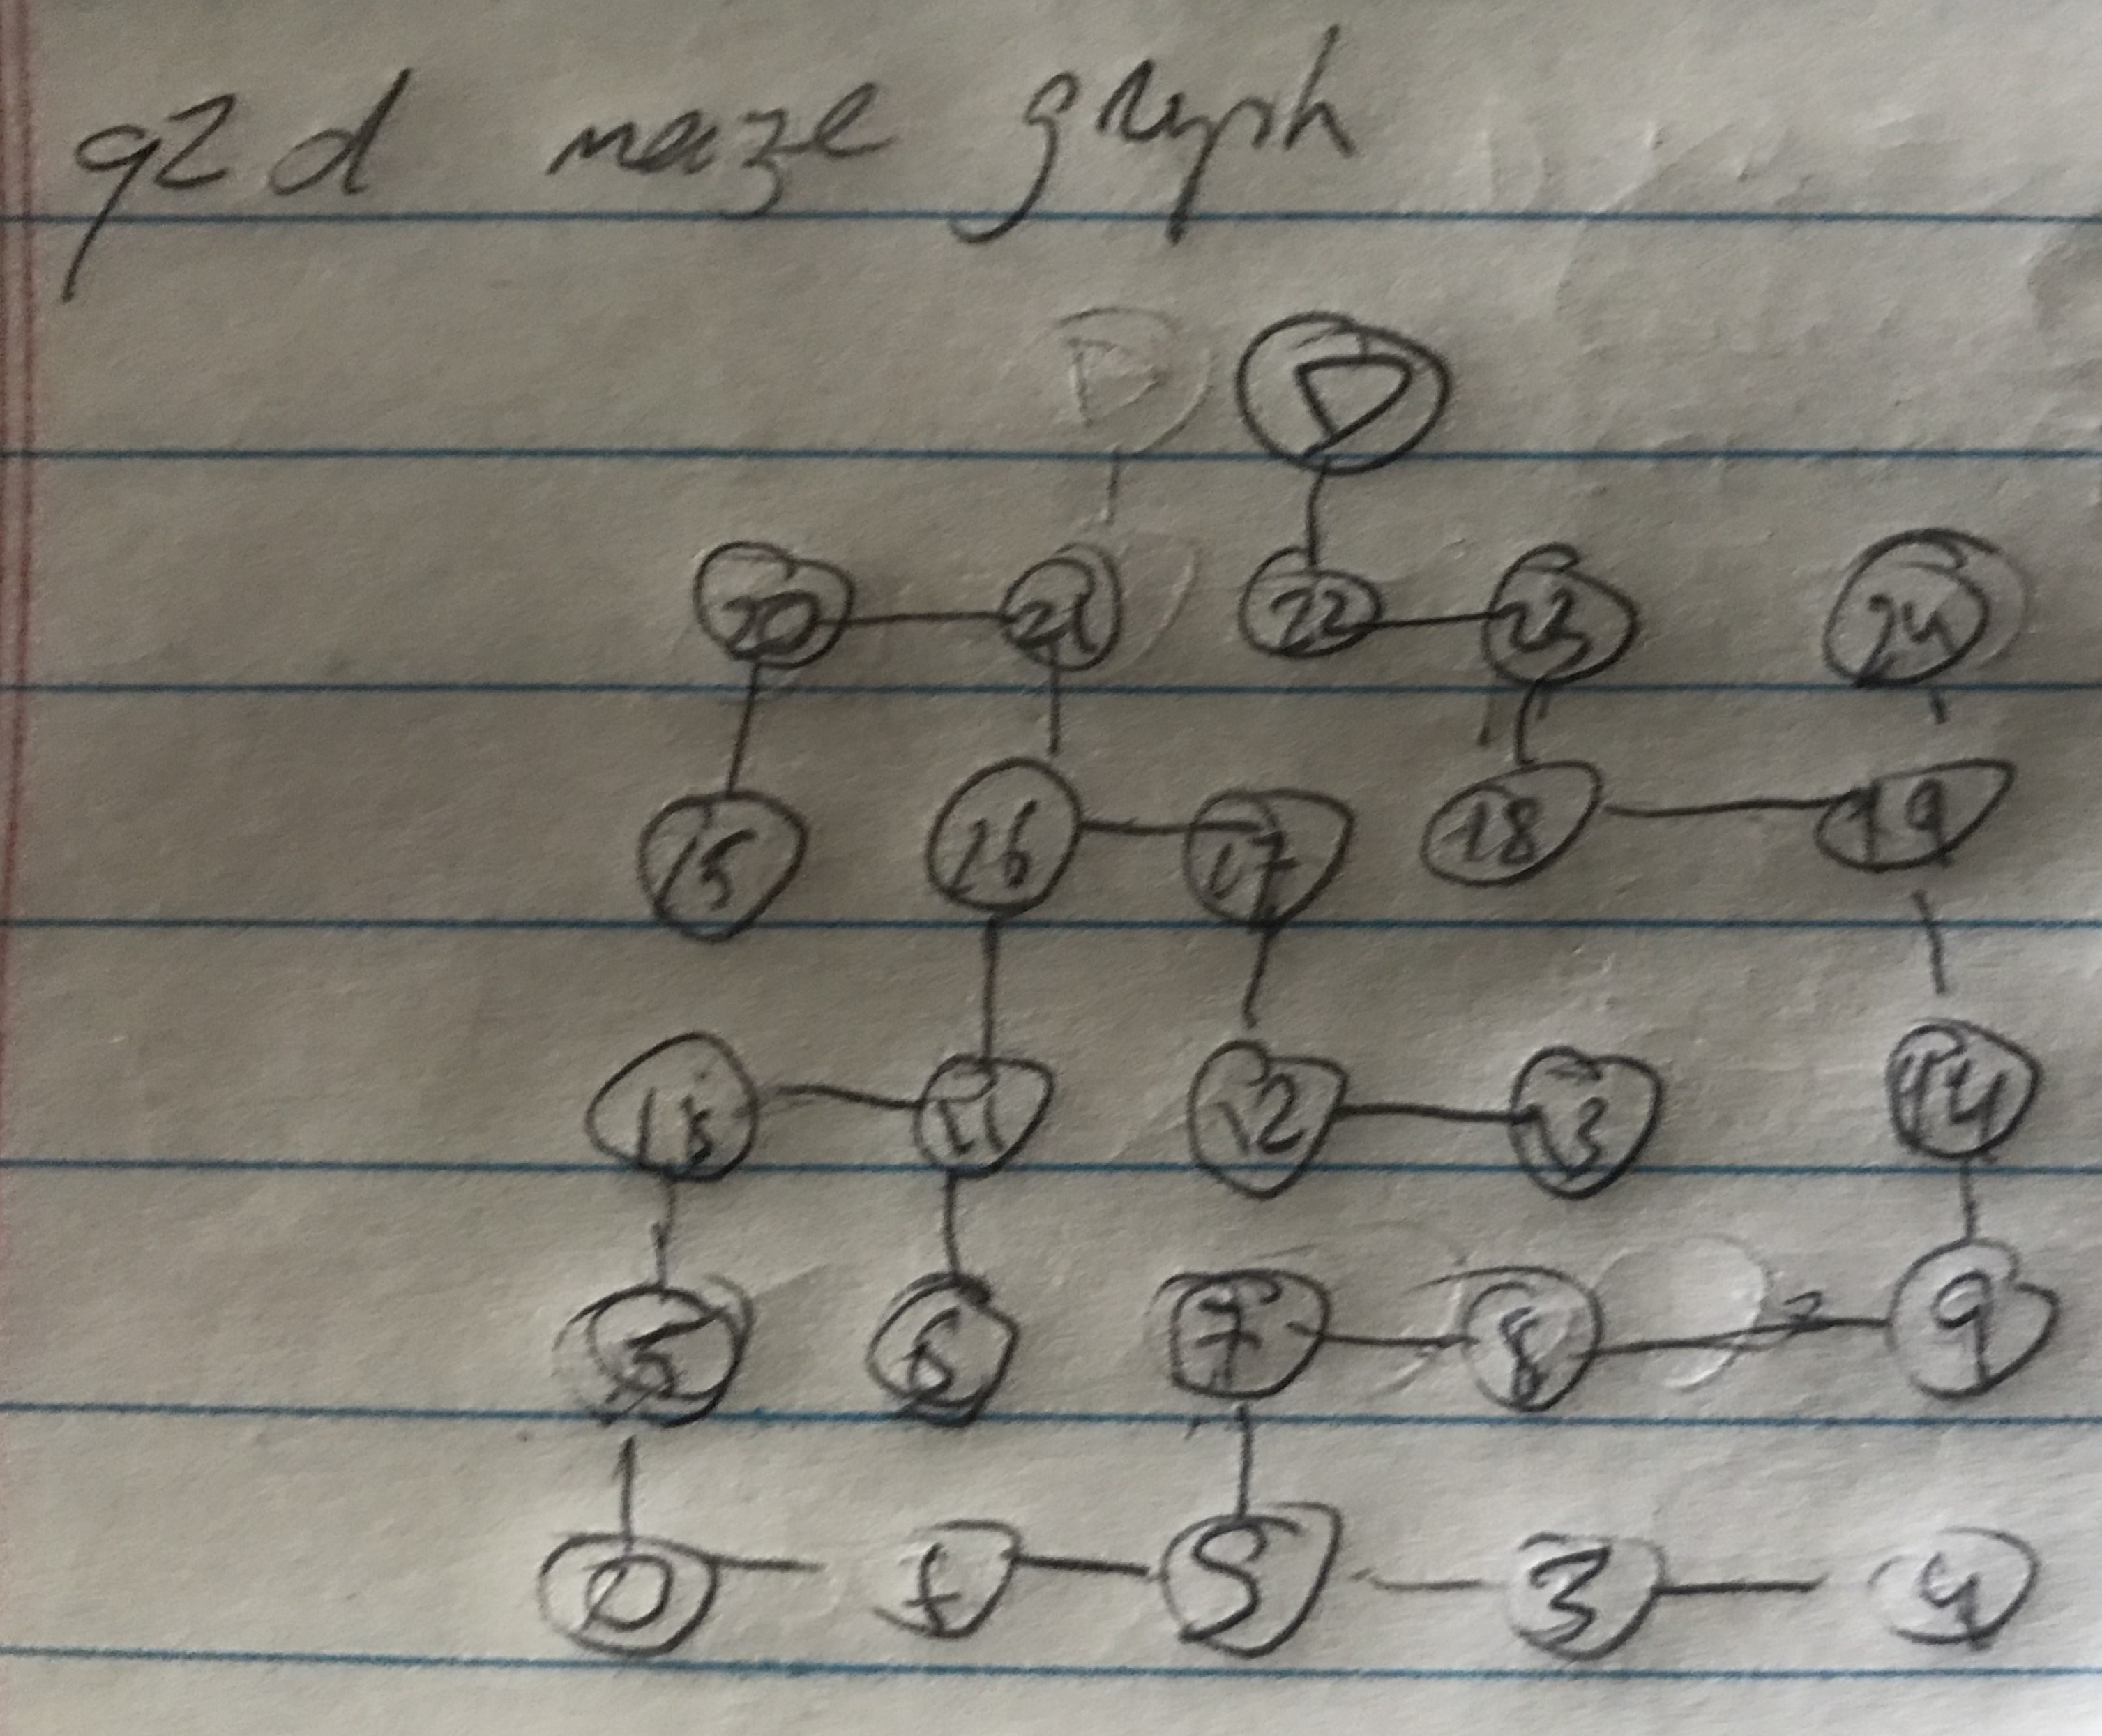 q2d maze graph
D
D
20 21 22 23 24
15 16 17 18 19
15 11 12 13 14
5 6 7 8 9
0 1 S 3 4